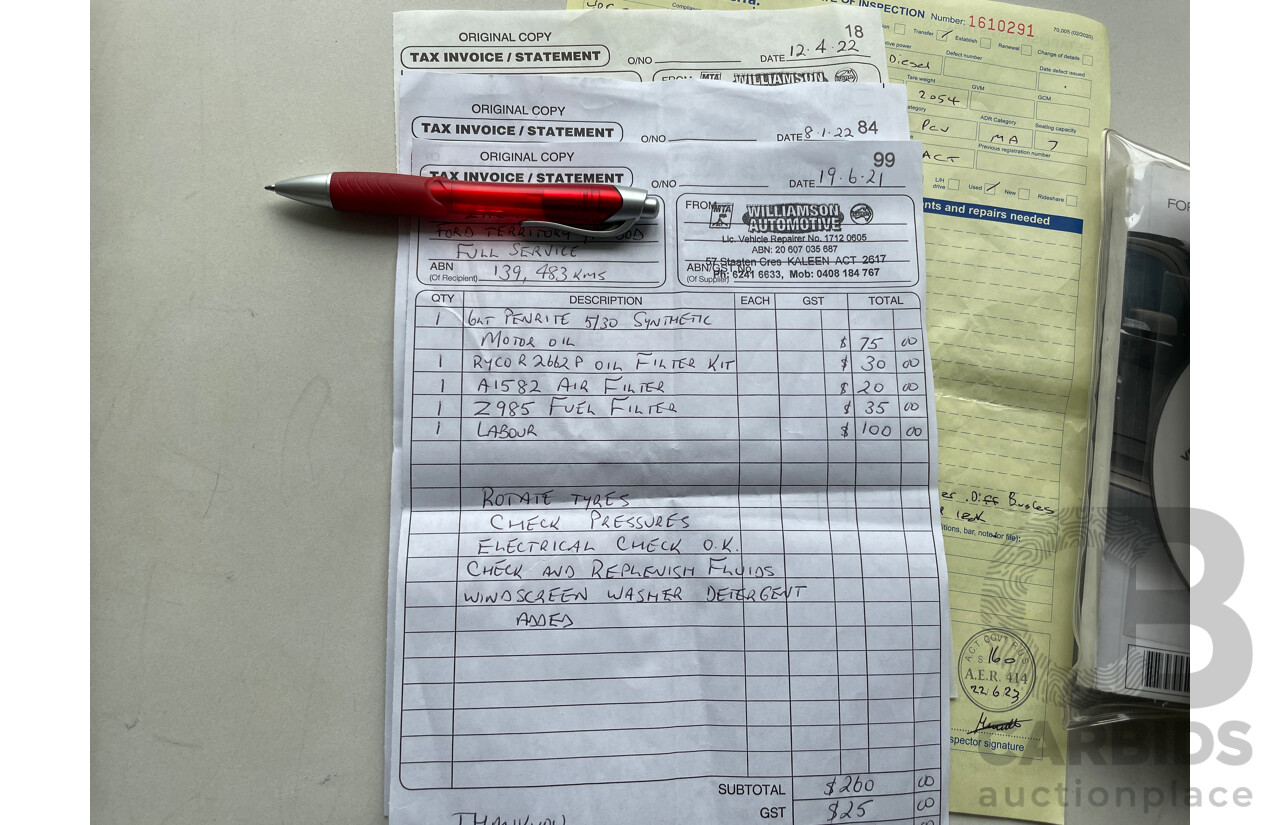 OF INSPECTION Number: 1610291
70.005 (02/2020)
Transfer ✓ Establish Renewal Change of details
Diesel
Defect number
Date defect issued
Tare weight
GVM
GCM
2054
ADR Category
Seating capacity
PCV
MA
7
Previous registration number
ACT
L/H drive Used ✓ New Rideshare
nts and repairs needed
Diff Bushes
leak
A.C.T. GOVT
160
A.E.R. 414
22.6.23
spector signature
18
ORIGINAL COPY
TAX INVOICE / STATEMENT O/NO DATE 12.4.22
FROM MTA WILLIAMSON
84
ORIGINAL COPY
TAX INVOICE / STATEMENT O/NO DATE 8.1.22
99
ORIGINAL COPY
TAX INVOICE / STATEMENT O/NO DATE 19.6.21
FROM MTA WILLIAMSON
AUTOMOTIVE
Lic. Vehicle Repairer No. 1712 0605
ABN: 20 607 035 687
57 Staaten Cres KALEEN ACT 2617
ABN/GST No.
(Of Supplier)
Ph: 6241 6633, Mob: 0408 184 767
FORD TERRITORY
FULL SERVICE
ABN
(Of Recipient) 139,483 KMS
QTY DESCRIPTION EACH GST TOTAL
1 6LT PENRITE 5/30 SYNTHETIC
MOTOR OIL $ 75 00
1 RYCO R2662P OIL FILTER KIT $ 30 00
1 A1582 AIR FILTER $ 20 00
1 Z985 FUEL FILTER $ 35 00
1 LABOUR $ 100 00
ROTATE TYRES
CHECK PRESSURES
ELECTRICAL CHECK O.K.
CHECK AND REPLENISH FLUIDS
WINDSCREEN WASHER DETERGENT
ADDED
SUBTOTAL $260 00
GST $25 00
THANKYOU
FOR
CARBIDS
auctionplace